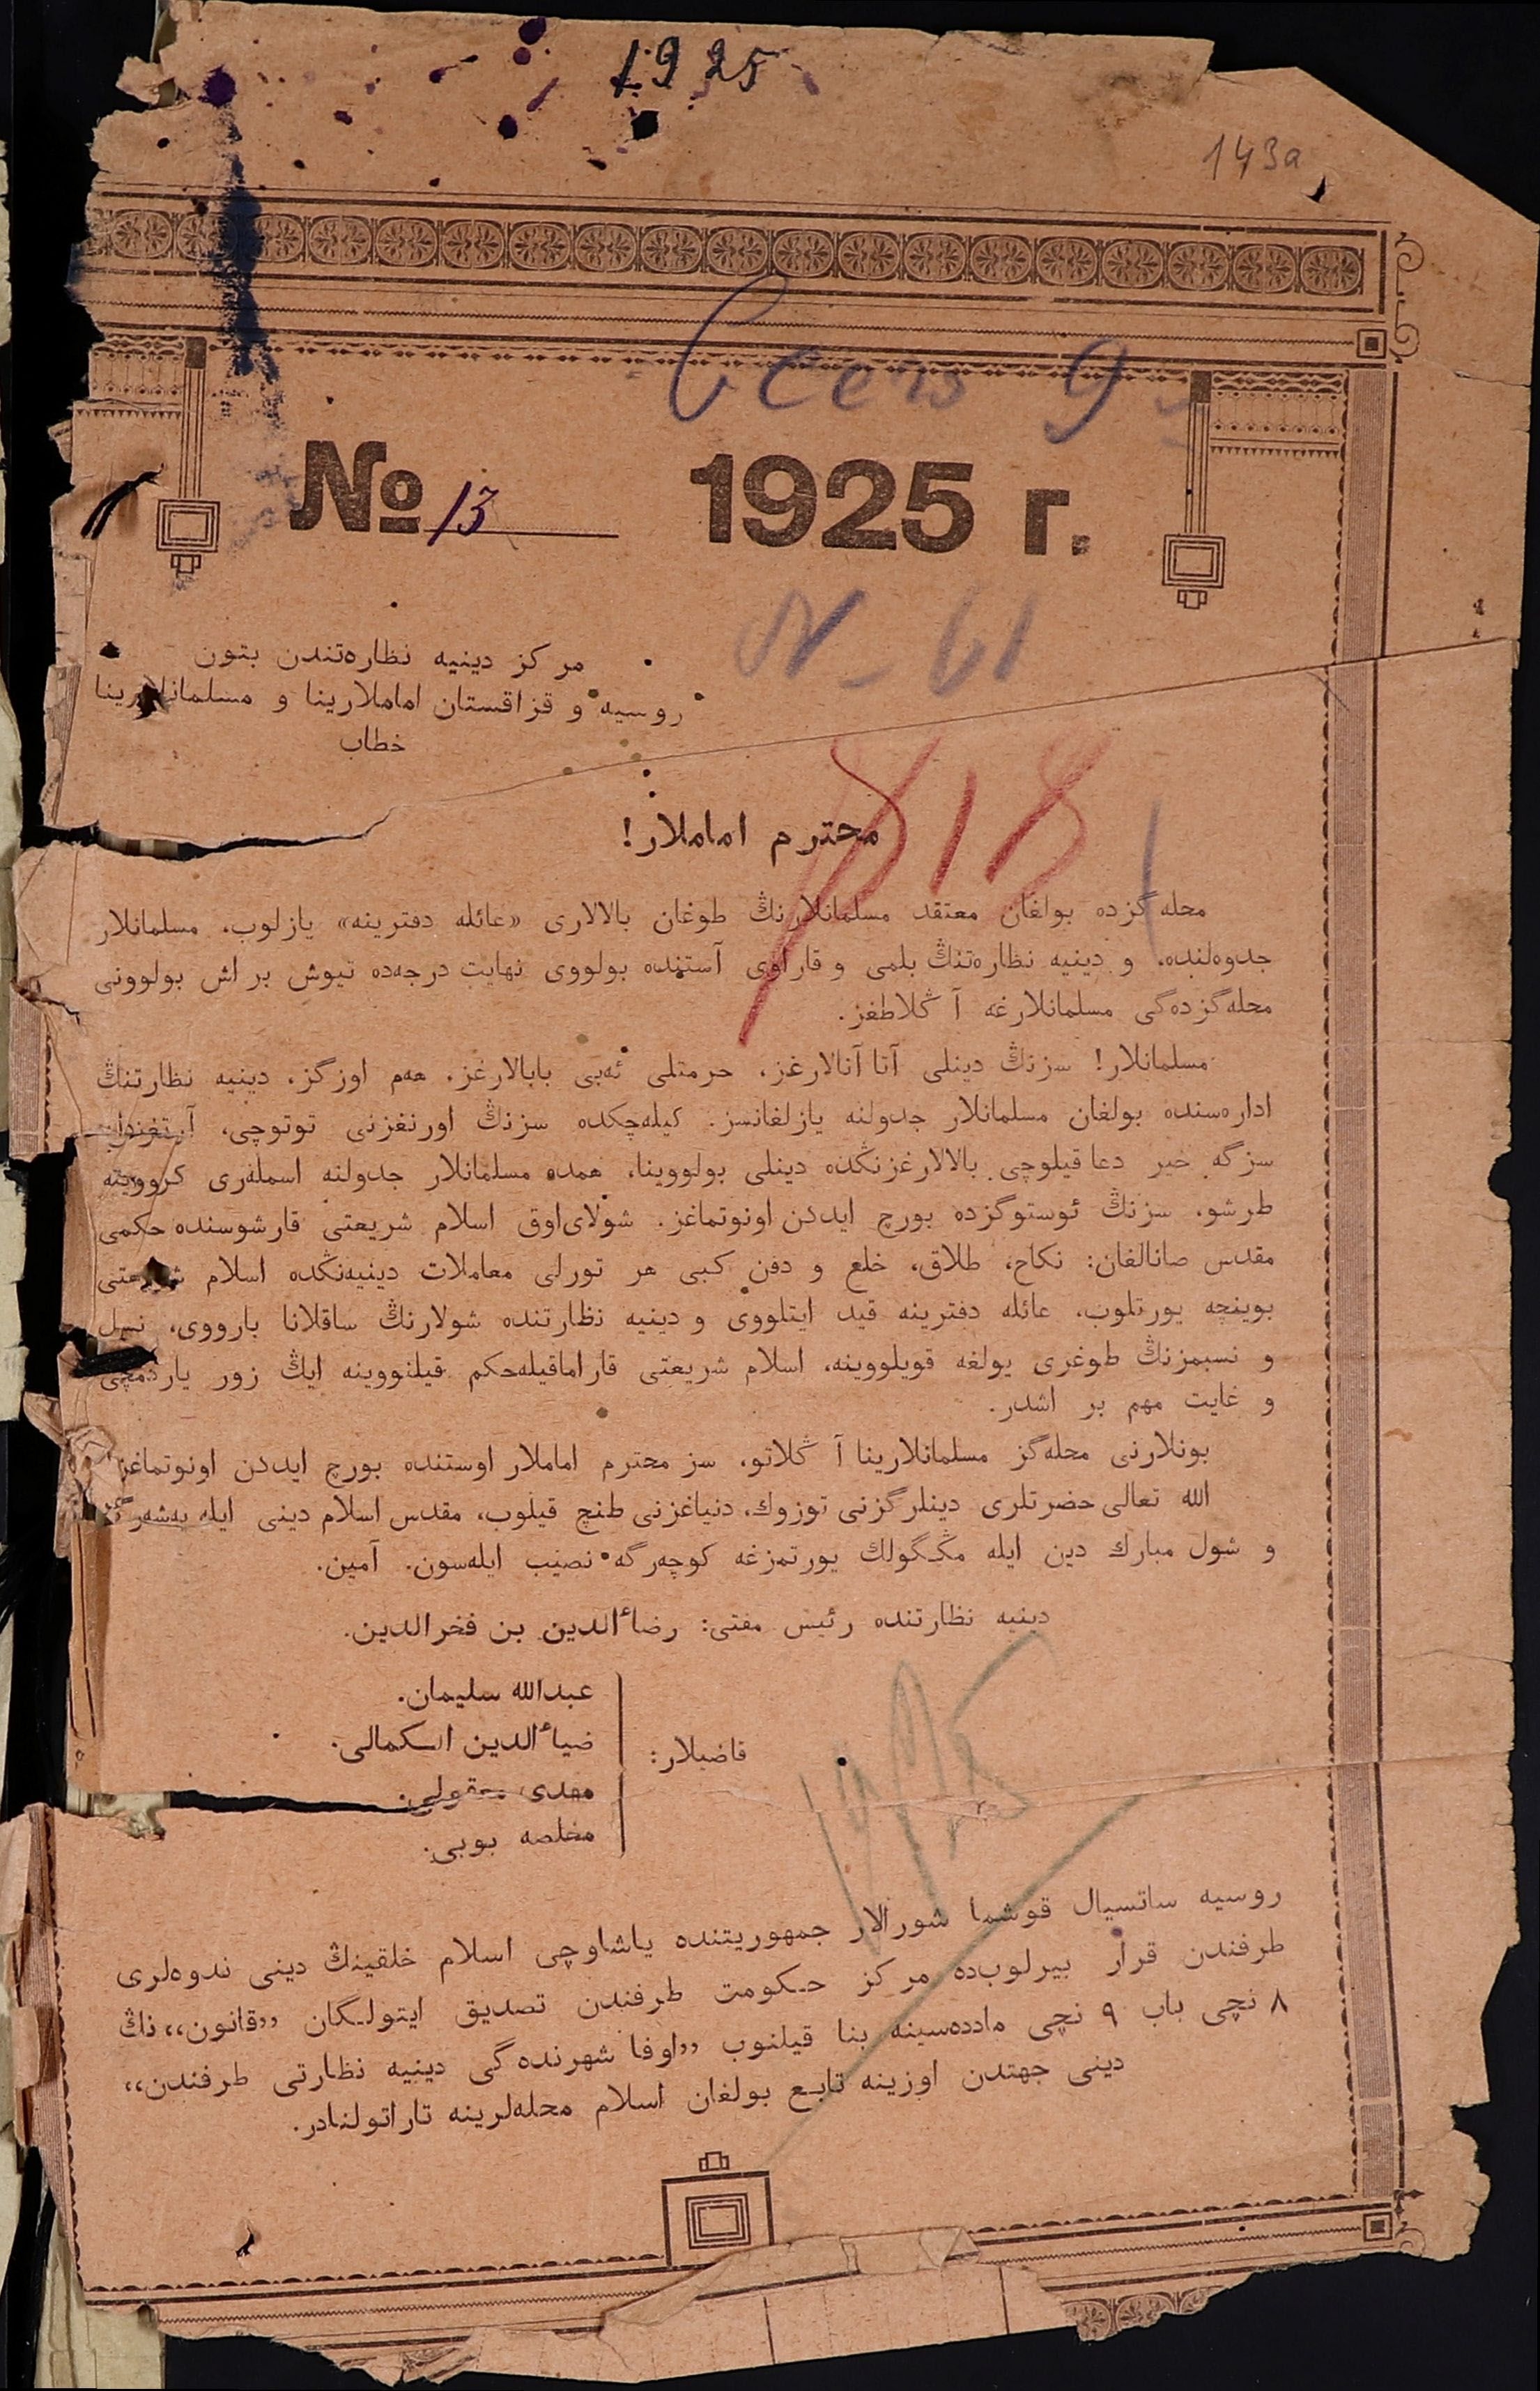 1925
143а
Всего 9
№ 13 1925 г.
N- 61
مركز دينيه نظاره‌تندن بتون
روسيه و قزاقستان اماملارينا و مسلمانلارينا
خطاب
818
محترم اماملار!
محله‌گزده بولغان معتقد مسلمانلارنڭ طوغان بالالارى «عائله دفترينه» يازلوب، مسلمانلار
جدوه‌لنده، و دينيه نظاره‌تنڭ بلمى و قاراوى آستنده بولووى نهايت درجه‌ده تيوش بر اش بولوونى
محله‌گزده‌گى مسلمانلارغه آڭلاطغز.
مسلمانلار! سزنڭ دينلى آتا آنالارغز، حرمتلى ئه‌بى بابالارغز، هم اوزگز، دينيه نظارتنڭ
اداره‌سنده بولغان مسلمانلار جدولنه يازلغانسز. كيله‌چكده سزنڭ اورنغزنى توتوچى، آرتغزدان
سزگه خير دعا قيلوچى بالالارغزنڭده دينلى بولووينا، همده مسلمانلار جدولنه اسمله‌رى كروويته
طرشو، سزنڭ ئوستوگزده بورچ ايدكن اونوتماغز. شولاى‌اوق اسلام شريعتى قارشوسنده حكمى
مقدس صانالغان: نكاح، طلاق، خلع و دفن كبى هر تورلى معاملات دينيه‌نڭده اسلام شريعتى
بوينچه يورتلوب، عائله دفترينه قيد ايتلووى و دينيه نظارتنده شولارنڭ ساقلانا بارووى، نسل
و نسبمزنڭ طوغرى يولغه قويلووينه، اسلام شريعتى قاراماقيله‌حكم قيلنووينه ايڭ زور ياردمچى
و غايت مهم بر اشدر.
بونلارنى محله‌گز مسلمانلارينا آڭلاتو، سز محترم اماملار اوستنده بورچ ايدكن اونوتماغز.
الله تعالى حضرتلرى دينلرگزنى توزوك، دنياغزنى طنچ قيلوب، مقدس اسلام دينى ايله يه‌شه‌رگه
و شول مبارك دين ايله مڭگولك يورتمزغه كوچه‌رگه نصيب ايله‌سون. آمين.
دينيه نظارتنده رئيس مفتى: رضاءالدين بن فخرالدين.
عبدالله سليمان.
ضياءالدين الكمالى.
قاضيلار:
مهدى مقولى.
مخلصه بوبى.
1925
روسيه ساتسيال قوشما شورالار جمهوريتنده ياشاوچى اسلام خلقينڭ دينى ندوه‌لرى
طرفندن قرار بيرلوب‌ده مركز حكومت طرفندن تصديق ايتولگان „قانون“نڭ
٨ نچى باب ٩ نچى مادده‌سينه بنا قيلنوب „اوفا شهرنده‌گى دينيه نظارتى طرفندن“
دينى جهتدن اوزينه تابع بولغان اسلام محله‌لرينه تاراتولنادر.